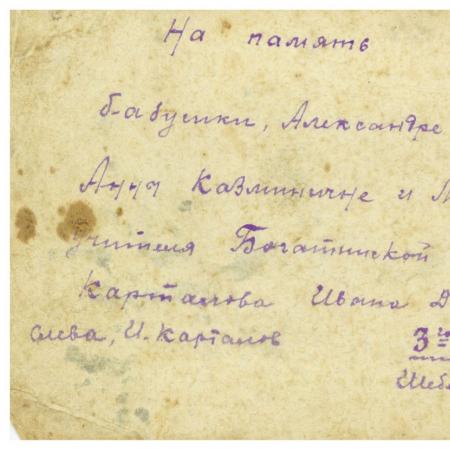 На память
бабушки, Александре
Анны Казминичне и М
учителя Богатинской
Карталова Ивана Д
И. Карталов
3го
Шеб